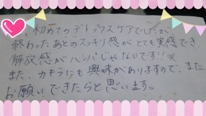 初めてのデトックスケアでしたが
終わったあとのスッキリ感がとても実感でき
解放感がハンパじゃないです!!
また、カキラにも興味がありますので、また
お願いできたらと思います。